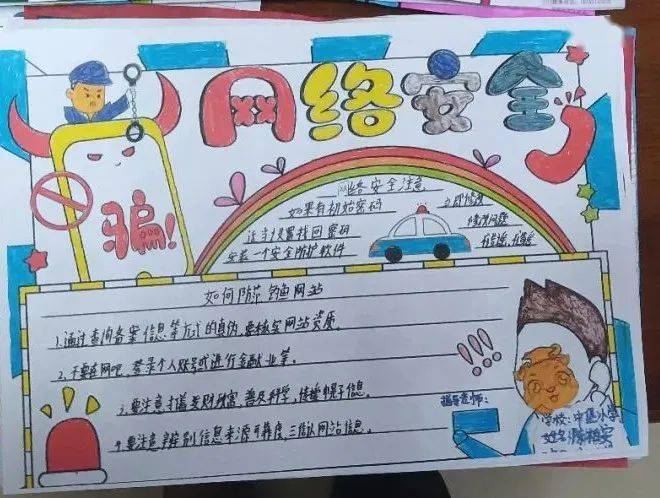 网络安全
骗!
网络安全注意
如果有初始密码
立即修改
设置找回密码
安装一个安全防护软件
如何防范钓鱼网站
1.通过查询备案信息等方式的真伪,要核实网站资质。
2.不要在网吧,登录个人账号或进行金融业务。
3.要注意
普及科学,传播
信息。
4.要注意辨别信息来源可靠度,
网站信息。
!!!
指导老师:
学校:中
小学
姓名:陈
安